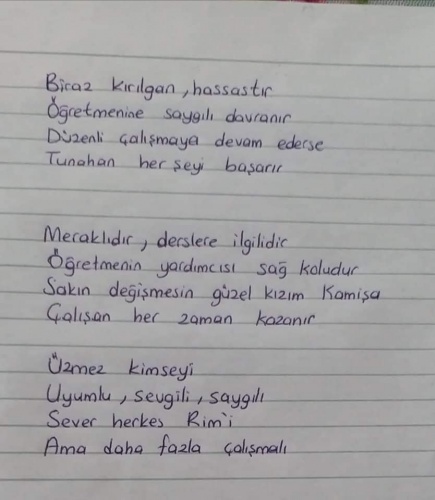 Biraz kırılgan, hassastır
Öğretmenine saygılı davranır
Düzenli çalışmaya devam ederse
Tunahan her şeyi başarır
Meraklıdır, derslere ilgilidir
Öğretmenin yardımcısı sağ koludur
Sakın değişmesin güzel kızım Kamişa
Çalışan her zaman kazanır
Üzmez kimseyi
Uyumlu, sevgili, saygılı
Sever herkes Rim'i
Ama daha fazla çalışmalı